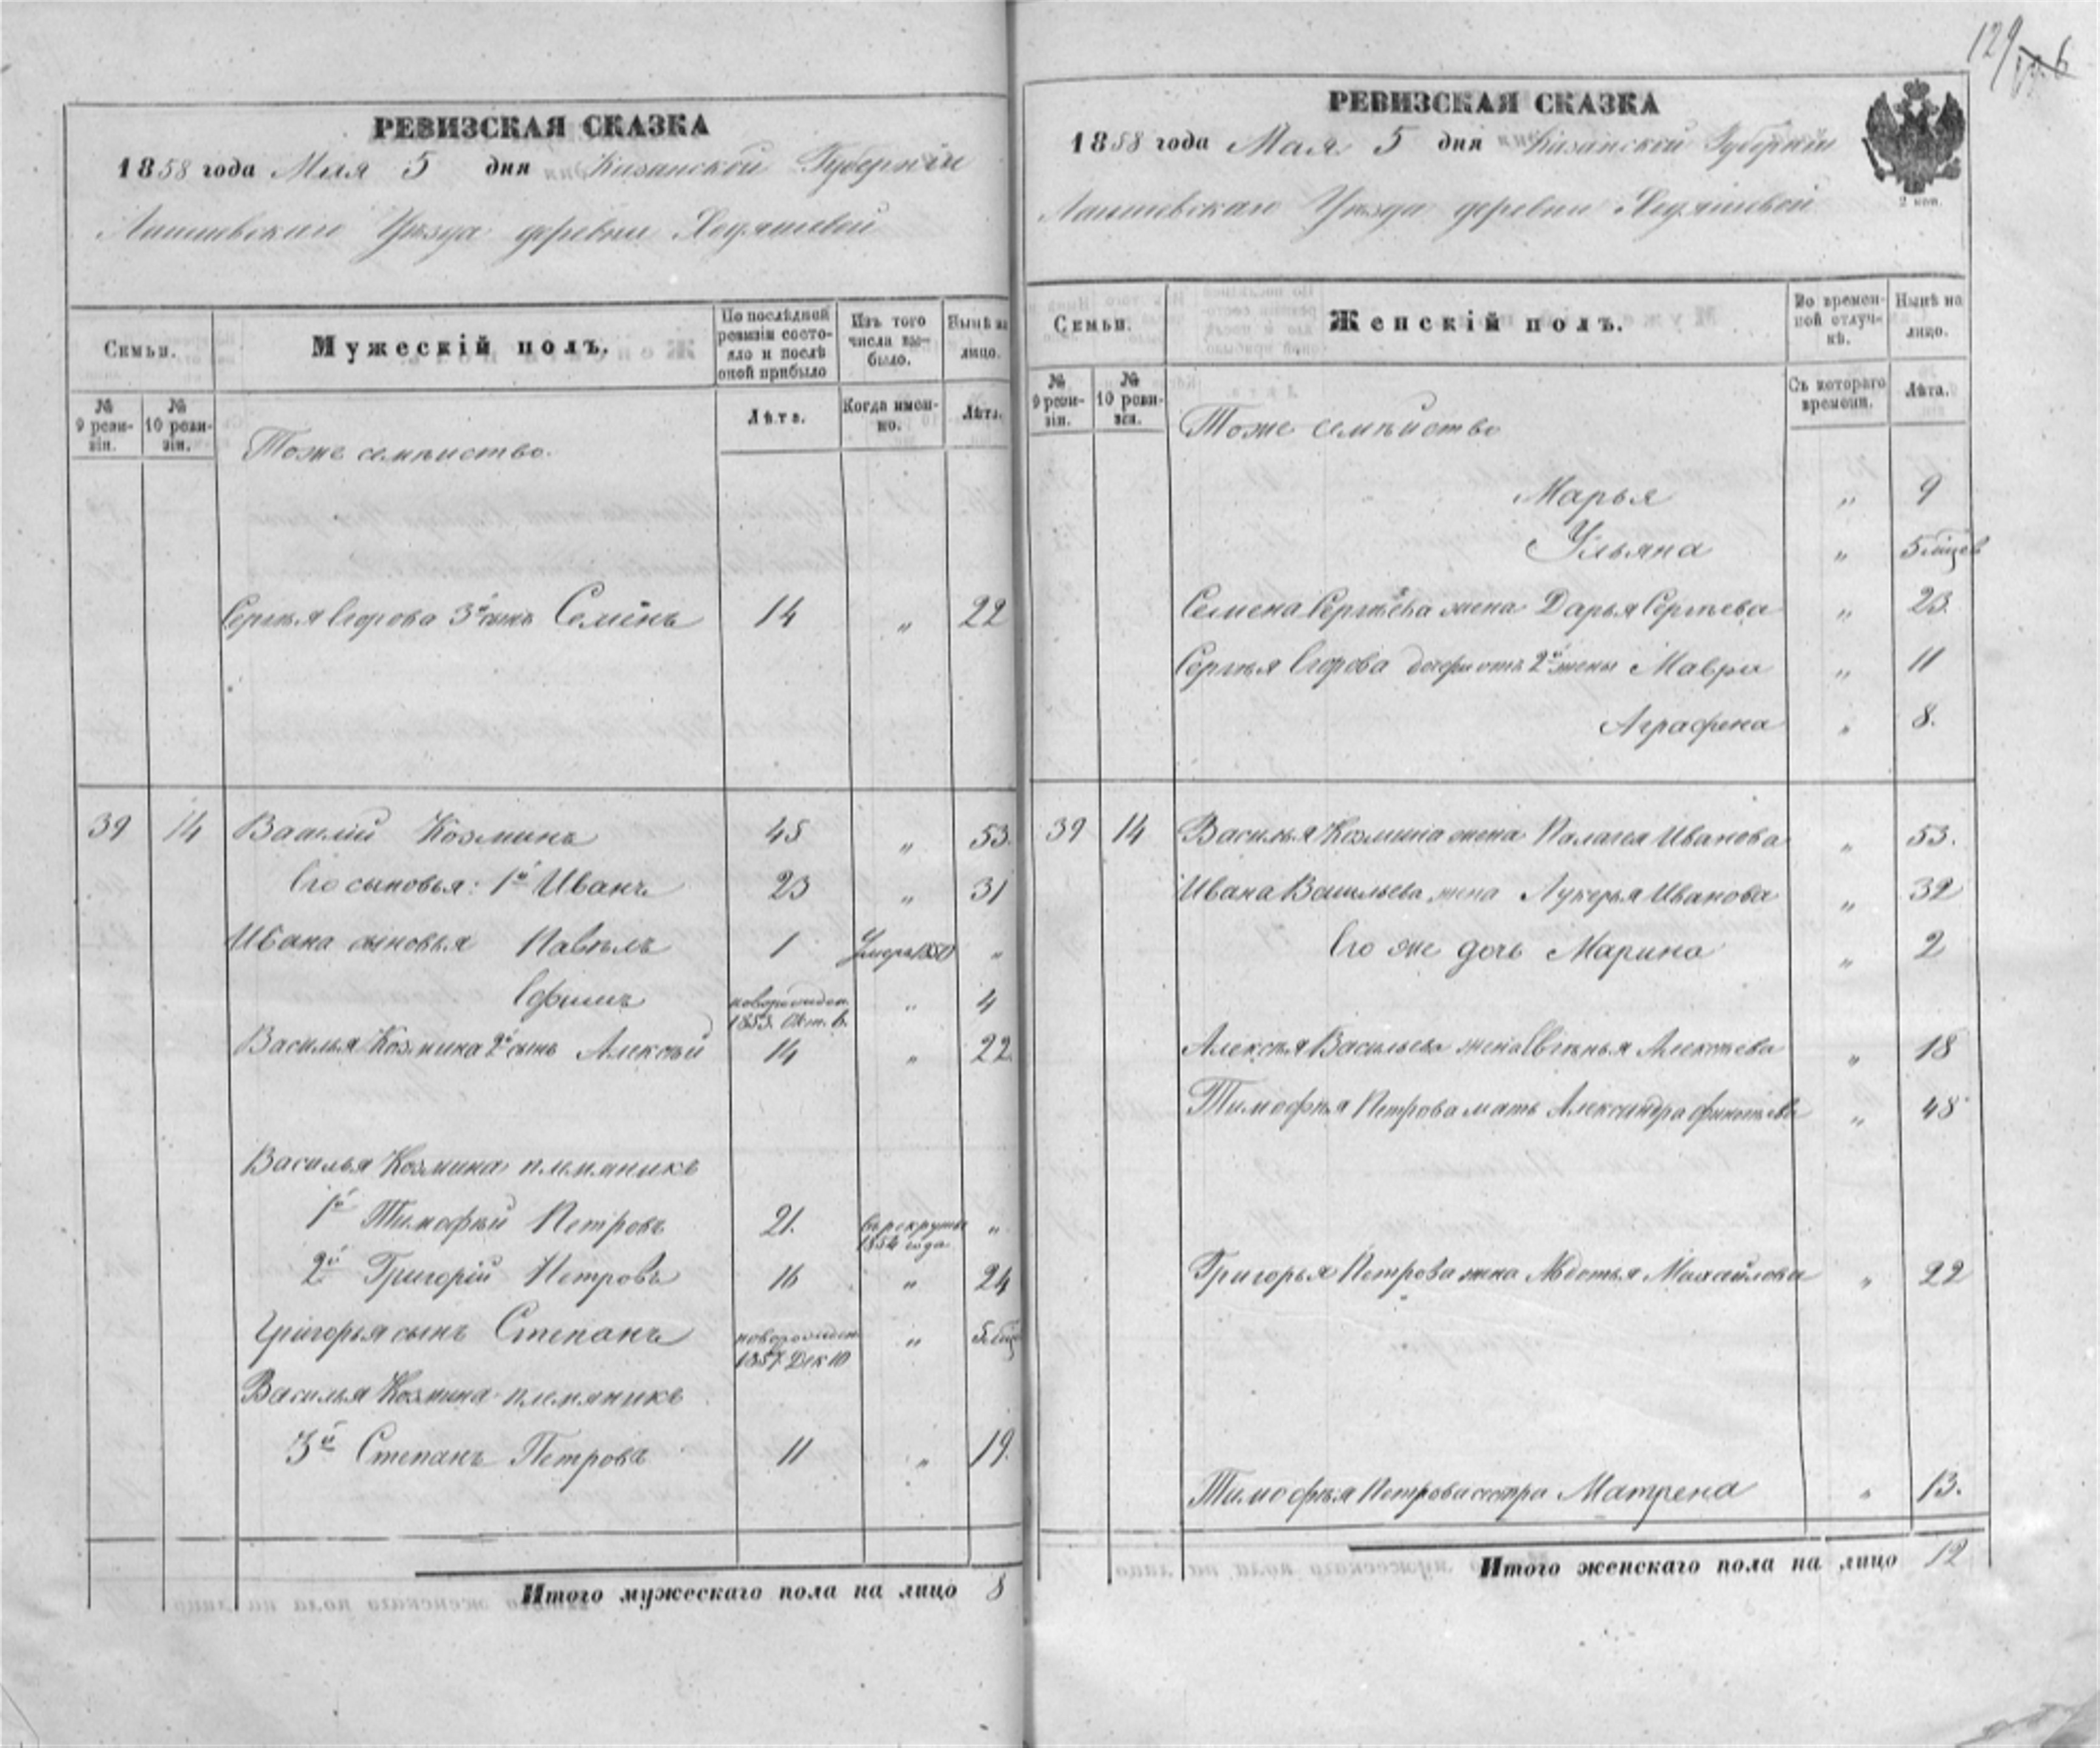 129
РЕВИЗСКАЯ СКАЗКА
1858 года Мая 5 дня Казанской Губерніи
Лаишевскаго Уѣзда деревни Ходяшевой
Семьи.
Мужескій полъ.
По послѣдней ревизіи состояло и послѣ оной прибыло
Изъ того числа выбыло.
Нынѣ на лицо.
№ 9 ревизіи.
№ 10 ревизіи.
Лѣта.
Когда именно.
Лѣта.
Тоже семѣйство.
Сергѣя Егорова 3й сынъ Семенъ 14 „ 22
39 14 Василій Козминъ 45 „ 53.
Его сыновья: 1й Иванъ 23 „ 31
Ивана сыновья Павелъ 1 Умеръ 1850 „
Ефимъ новорожден. 1853. Окт. 6. „ 4
Василья Козмина 2й сынъ Алексѣй 14 „ 22
Василья Козмина племяникъ
1й Тимофѣй Петровъ 21. Въ рекруты 1854 года „
2й Григорій Петровъ 16 „ 24
Григорья сынъ Степанъ новорожден. 1857. Дек 10 „ 5 мѣц
Василья Козмина племяникъ
3й Степанъ Петровъ 11 „ 19.
Итого мужескаго пола на лицо 8
РЕВИЗСКАЯ СКАЗКА
1858 года Мая 5 дня Казанской Губерніи
Лаишевскаго Уѣзда деревни Ходяшевой
2 коп.
Семьи.
Женскій полъ.
Во временной отлучкѣ.
Нынѣ на лицо.
№ 9 ревизіи.
№ 10 ревизіи.
Съ котораго времени.
Лѣта.
Тоже семѣйство
Марья „ 9
Ульяна „ 5 мѣцев
Семена Сергѣева жена Дарья Сергѣева „ 23.
Сергѣя Егорова дочери отъ 2й жены Мавра „ 11
Аграфена „ 8.
39 14 Василья Козмина жена Палагея Иванова „ 53.
Ивана Васильева жена Лукерья Иванова „ 32
Его же дочь Марина „ 2
Алексѣя Васильева жена Евгѣнья Алексѣева „ 18
Тимофѣя Петрова мать Александра „ 48
Григорья Петрова жена Авдотья Михайлова „ 22
Тимофѣя Петрова сестра Матрена „ 13.
Итого женскаго пола на лицо 12